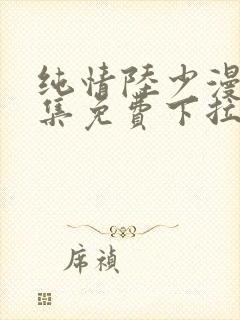 纯情陸少漫
集免費下拉
席禎